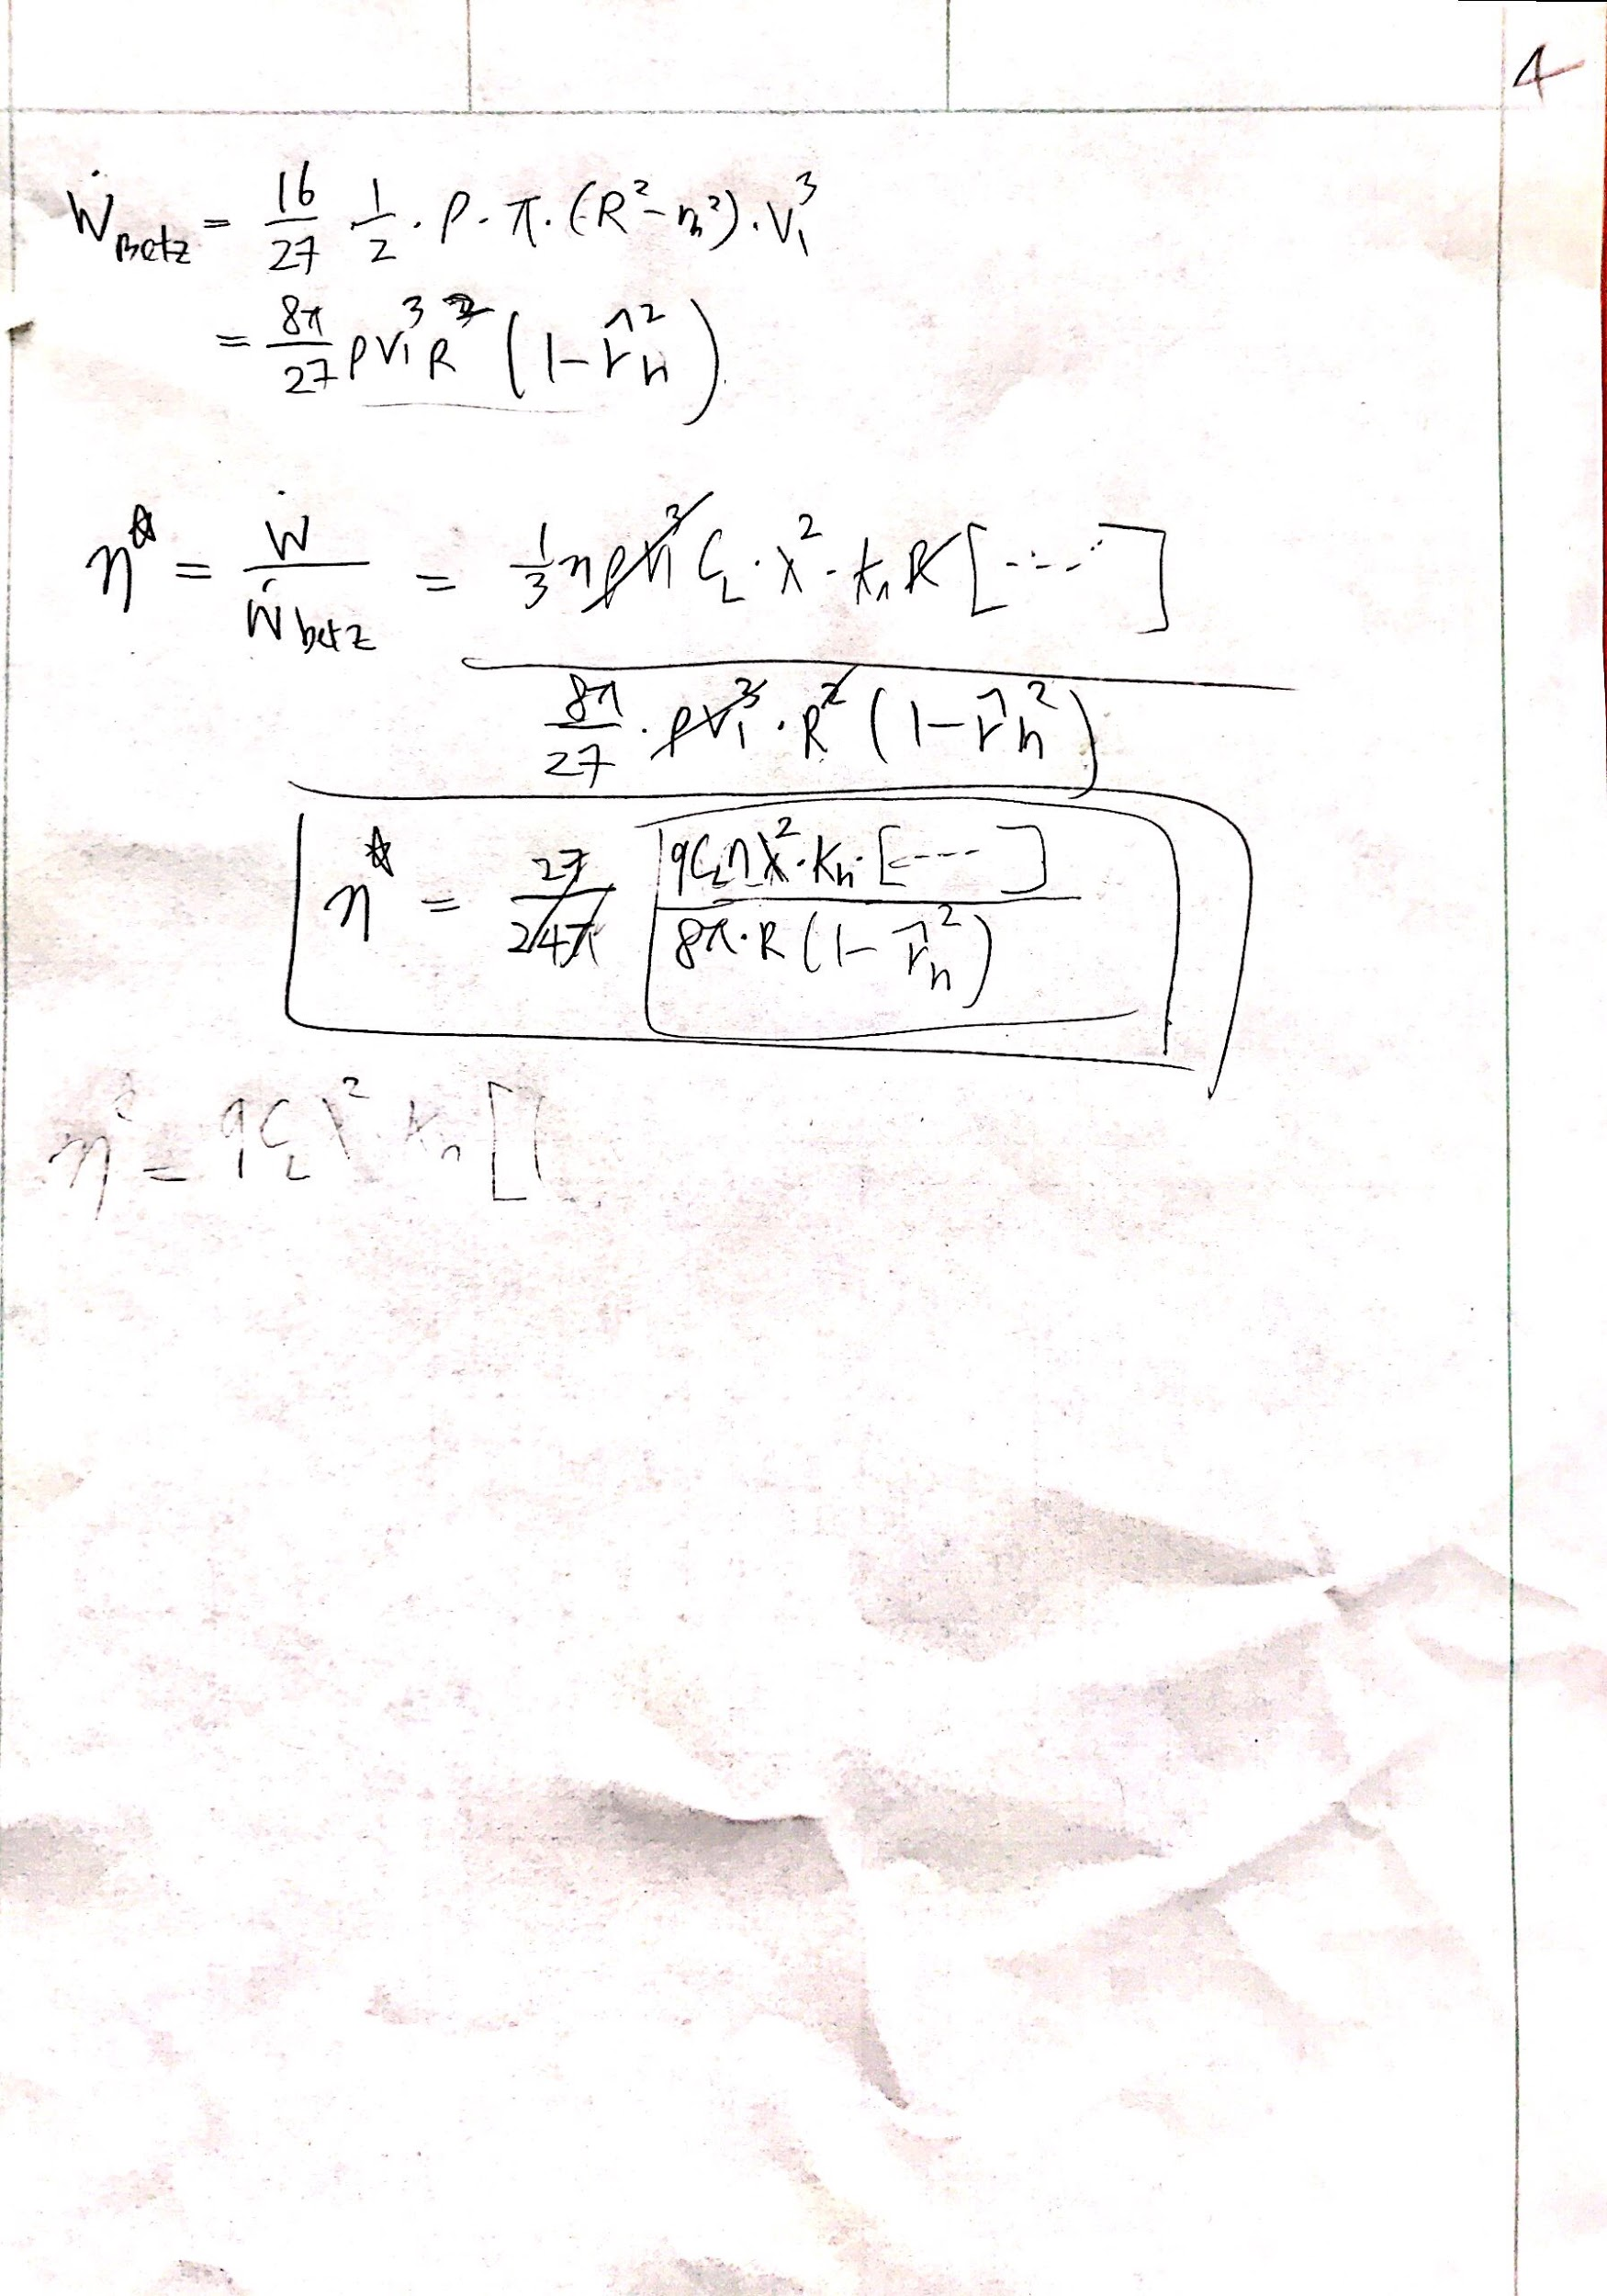 4
Ẇ_Betz = 16/27 1/2 · ρ · π · (R² - r_h²) · V₁³
= 8π/27 ρV₁³R² (1 - r̂_h²)
η* = Ẇ/Ẇ_betz = 1/3 nρV₁³ C_L · λ² · k_h R [.....]
8π/27 · ρV₁³ · R² (1 - r̂_h²)
η* = 27/24π 9C_L n λ² · K_h · [----] / 8π · R (1 - r̂_h²)
η* = 9C_L λ² · K_h [(